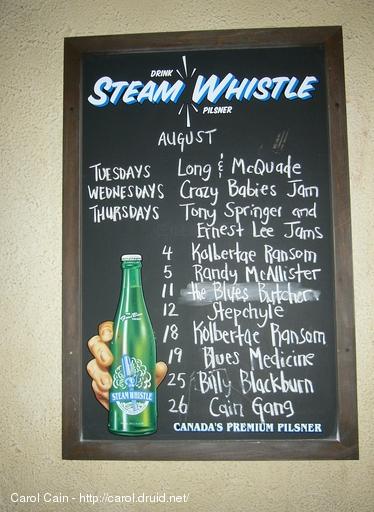 DRINK
STEAM WHISTLE
PILSNER
AUGUST
TUESDAYS Long & McQuade
WEDNESDAYS Crazy Babies Jam
THURSDAYS Tony Springer and
Ernest Lee Jams
4 Kolbertae Ransom
5 Randy McAllister
11 the Blues Butcher
12 Stepchyle
18 Kolbertae Ransom
19 Blues Medicine
25 Billy Blackburn
26 Cain Gang
STEAM WHISTLE
CANADA'S PREMIUM PILSNER
Carol Cain - http://carol.druid.net/